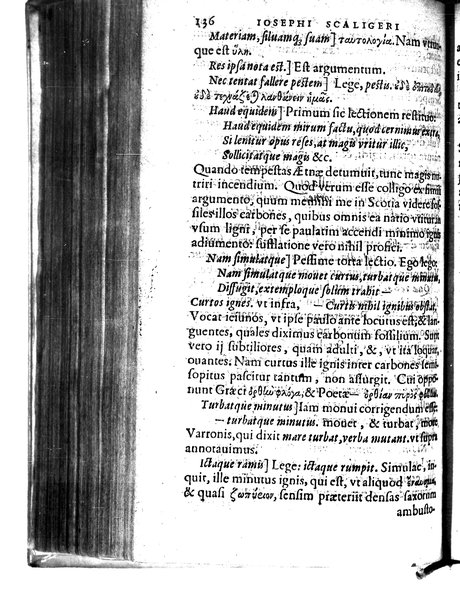 136 IOSEPHI SCALIGERI
Materiam, siluamq, suam] ταυτολογία. Nam vtrum-
que est ὕλη.
Res ipsa nota est.] Est argumentum.
Nec tentat fallere pestem] Lege, pestis. ἐδὲ
ἐδὲ τεχνάζεται λανθάνειν ἡμᾶς.
Haud equidem] Primum sic lectionem restituo:
Haud equidem mirum factu, quod cernimus extra,
Si lenitur opus reses, at magis vritur illic,
Sollicitatque magis &c.
Quando tempestas Ætnæ detumuit, tunc magis nu-
triri incendium. Quod verum esse colligo ex simili
argumento, quum memini me in Scotia videre fos-
siles illos carbones, quibus omnis ea natio vtitur in
vsum ligni, per se paulatim accendi minimo ignis
adiumento: sufflatione vero nihil profici.
Nam simulatque] Pessime torta lectio. Ego lego:
Nam simulatque mouet curtus, turbatque minutus,
Diffugit, extemploque solum trahit —
Curtos ignes. vt infra, — Curtis nihil ignibus obstat.
Vocat ieiunos, vt ipse paulo ante locutus est, & lan-
guentes, quales diximus carbonum fossilium. Sunt
vero ij subtiliores, quam adulti, &, vt ita loquar,
ouantes. Nam curtus ille ignis inter carbones semi-
sopitus pascitur tantum, non assurgit. Cui oppo-
nunt Græci ὀρθίω φλόγα, & Poetæ— ὀρθίαν πυρὸς
Turbatque minutus] Iam monui corrigendum esse:
— turbatque minutus. mouet, & turbat, more
Varronis, qui dixit mare turbat, verba mutant. vt supra
annotauimus.
Ictaque ramis] Lege: ictaque rumpit. Simulac, in-
quit, ille minutus ignis, qui est, vt aliquod
& quasi ζωπύειον, sensim præteriit densas saxorum
ambusto-